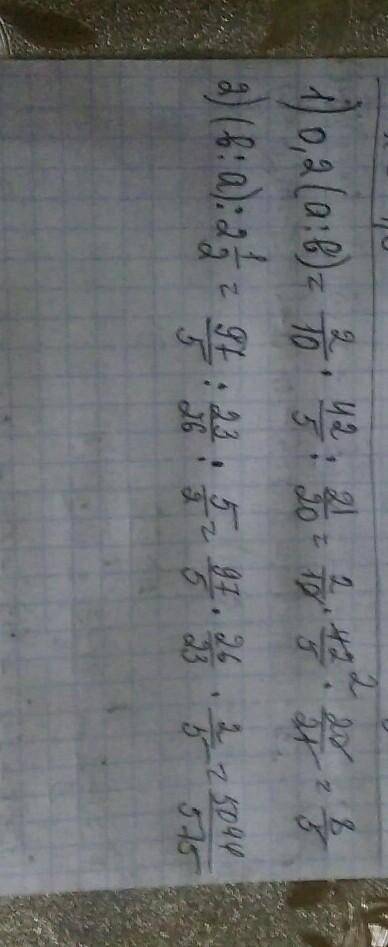 1) 0,2(a:b) = 2/10 · 42/5 : 21/20 = 2/10 · 42/5 · 20/21 = 8/5
2) (b:a) : 2 1/2 = 97/5 : 23/26 : 5/2 = 97/5 · 26/23 · 2/5 = 5044/575